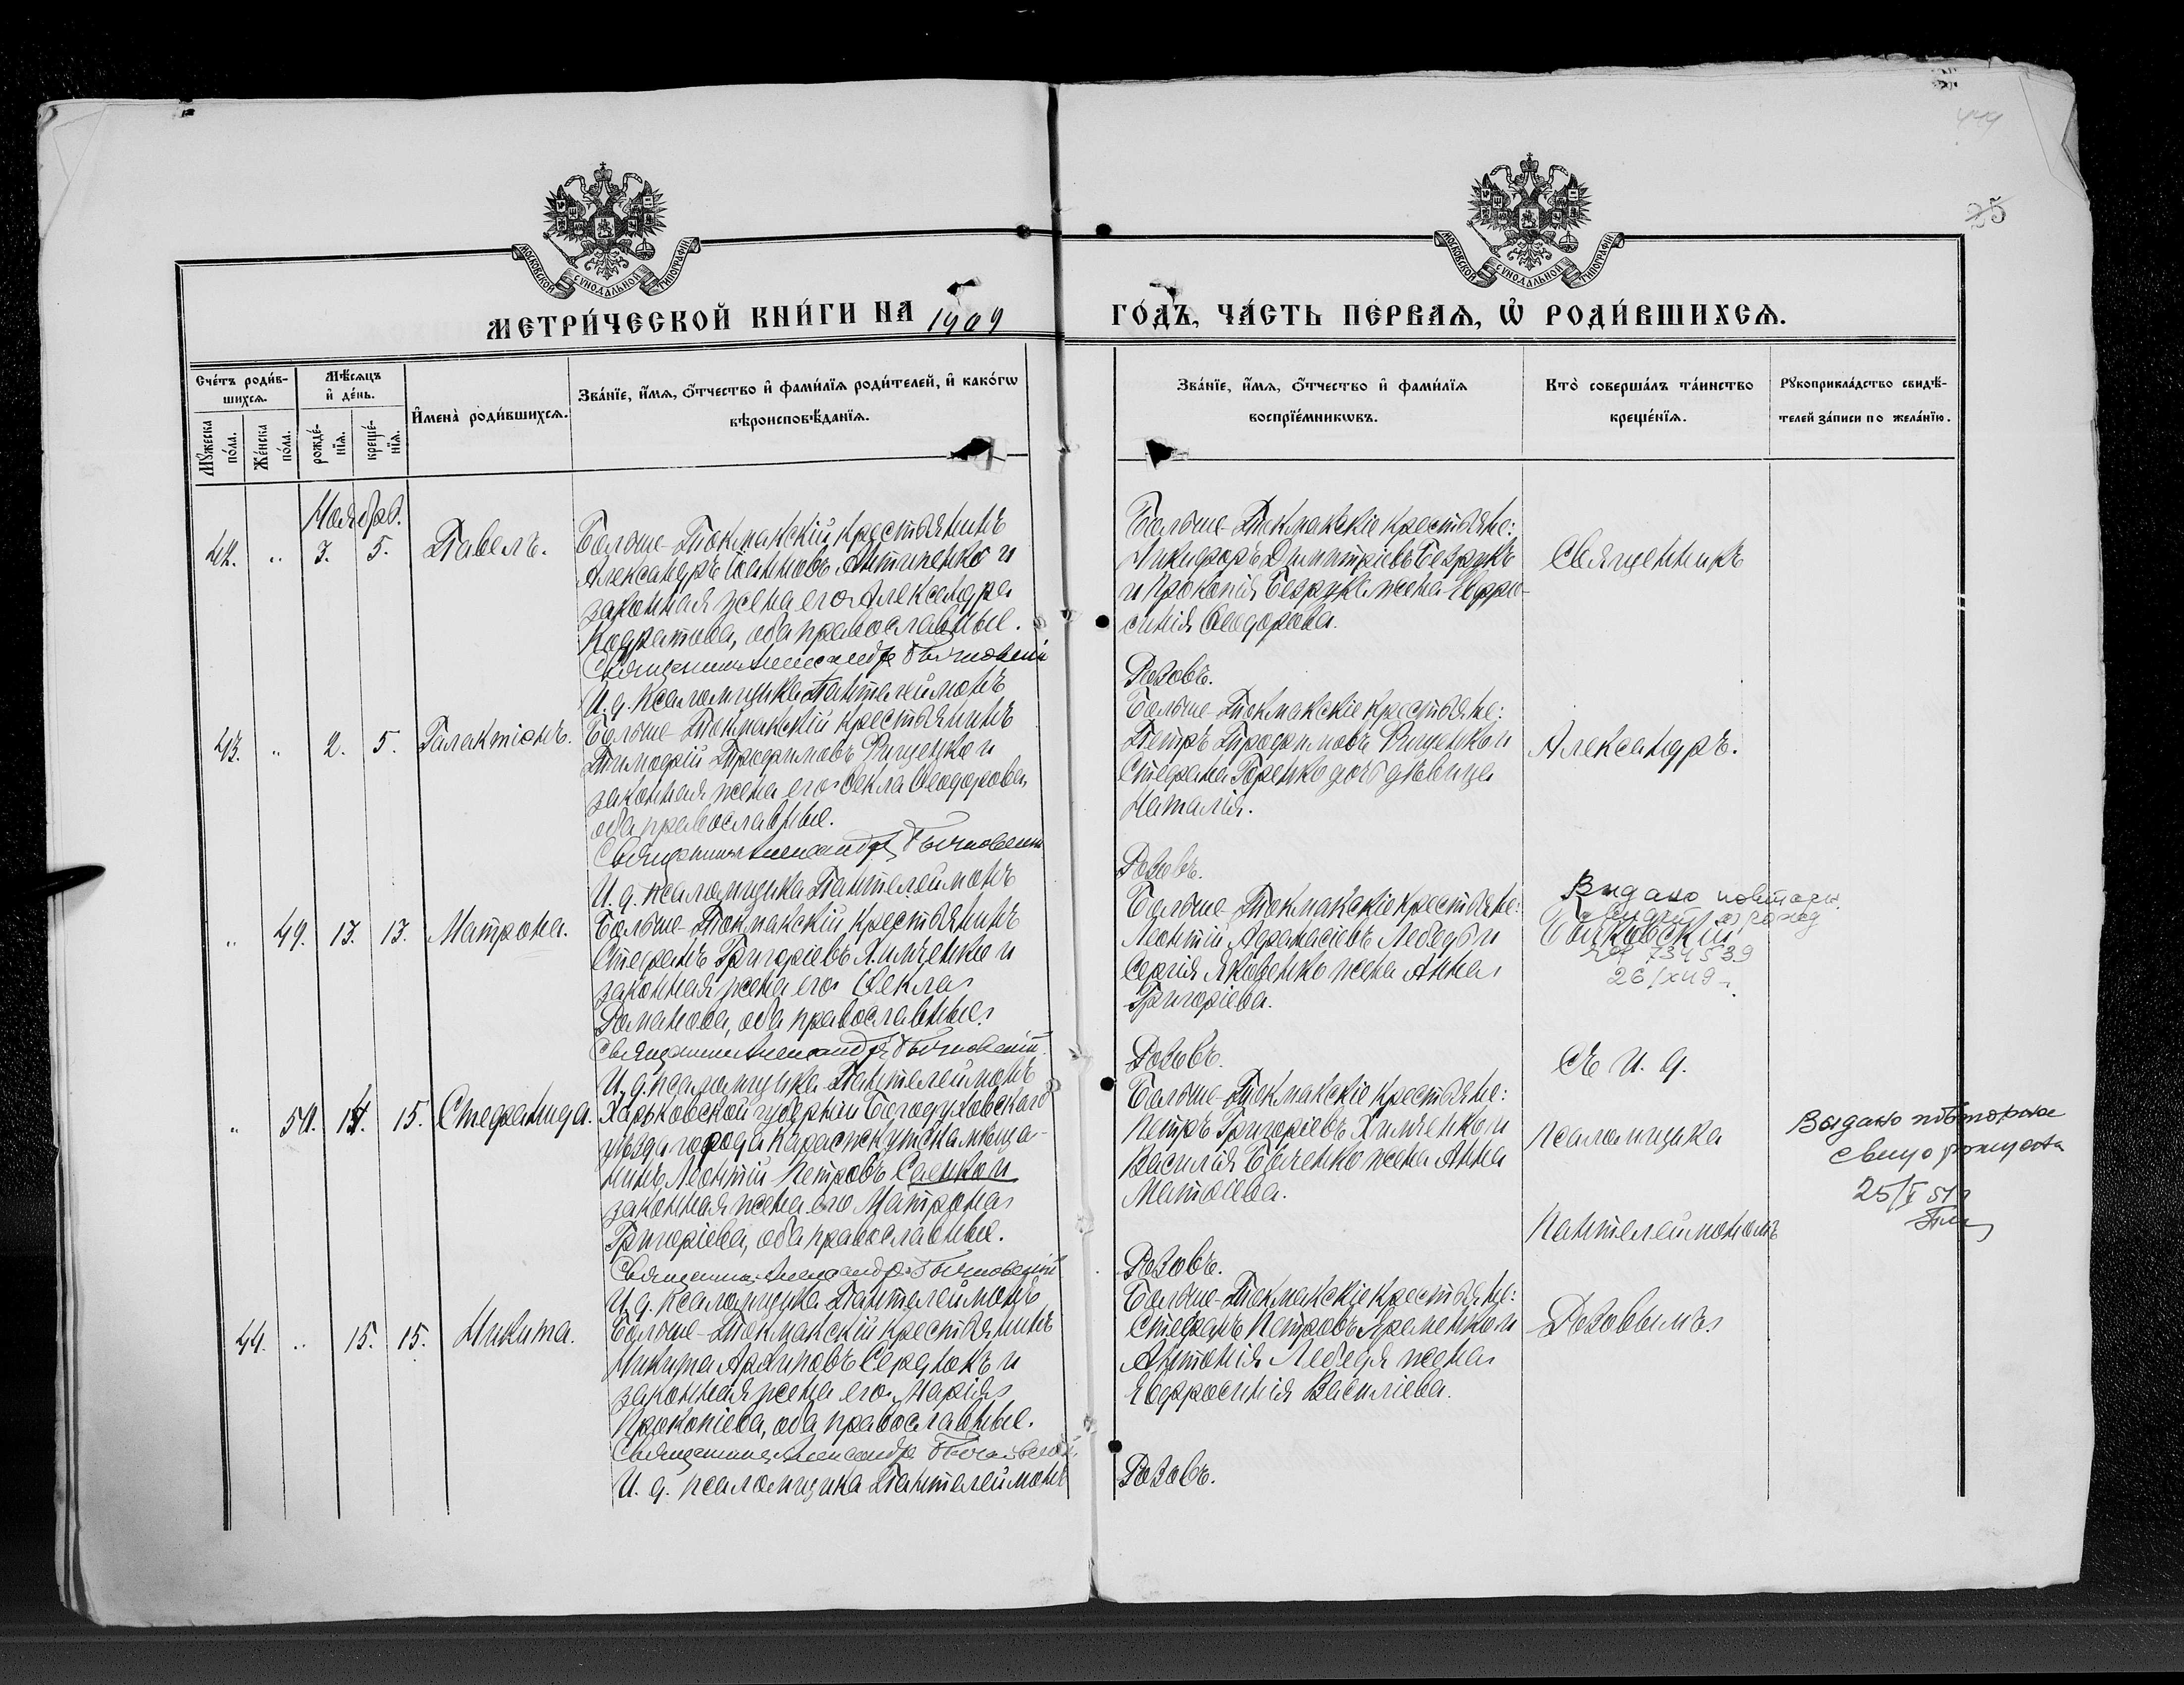 25
МОСКОВСКОЙ СѴНОДАЛЬНОЙ ТИПОГРАФІИ
МОСКОВСКОЙ СѴНОДАЛЬНОЙ ТИПОГРАФІИ
МЕТРИ́ЧЕСКОЙ КНИ́ГИ НА 1909
ГО́ДЪ, ЧА́СТЬ ПЕ́РВАѦ, Ѡ҆ РОДИ́ВШИХСѦ.
Сче́тъ роди́в-
шихсѧ.
Мꙋ́жеска
по́ла.
Же́нска
по́ла.
Мѣ́сѧцъ
и҆ де́нь.
рожде́-
нїѧ.
креще́-
нїѧ.
И҆мена̀ роди́вшихсѧ.
Зва́нїе, и҆́мѧ, ѻ҆́тчество и҆ фами́лїѧ роди́телей, и҆ како́гѡ
вѣроисповѣ́данїѧ.
Зва́нїе, и҆́мѧ, ѻ҆́тчество и҆ фами́лїѧ
воспрїе́мникѡвъ.
Кто̀ соверша́лъ та́инство
креще́нїѧ.
Рꙋкоприкла́дство свидѣ́-
телей за́писи по жела́нїю.
Ноябрь.
42. „ 3. 5. Павелъ.
Больше-Токмакскій крестьянинъ
Александръ Іоанновъ Антипенко и
законная жена его Александра
Кодратова, оба православные.
Священникъ Александръ
И. д. псаломщика Пантелеймонъ
Больше-Токмакскіе крестьяне:
Никифоръ Димитріевъ Безрукъ
и Прокопія Безрука жена Евфро-
синія Ѳеодорова.
Розовъ.
Священникъ
43. „ 2. 5. Галактіонъ.
Больше-Токмакскій крестьянинъ
Тимофій Трофимовъ Рищенко и
законная жена его Ѳекла Ѳеодорова,
оба православные.
Священникъ Александръ
И. д. псаломщика Пантелеймонъ
Больше-Токмакскіе крестьяне:
Петръ Трофимовъ Рищенко и
Стефана Горенко дочь дѣвица
Наталія.
Розовъ.
Александръ.
„ 49. 13. 13. Матрона.
Больше-Токмакскій крестьянинъ
Стефанъ Григоріевъ Химченко и
законная жена его Ѳекла
Романова, оба православные.
Священникъ Александръ
И. д. псаломщика Пантелеймонъ
Больше-Токмакскіе крестьяне:
Леонтій Афанасіевъ Лебедь и
Сергія Яковенко жена Анна
Григоріева.
Розовъ.
Видано повторн.
734539
съ И. д.
„ 50. 14. 15. Стефанида.
Харьковской губерніи Богодуховскаго
уѣзда города Краснокутска мѣща-
нинъ Леонтій Петровъ Саенко и
законная жена его Матрона
Григоріева, оба православные.
Священникъ Александръ
И. д. псаломщика Пантелеймонъ
Больше-Токмакскіе крестьяне:
Петръ Григоріевъ Химченко и
Василія Бойченко жена Анна
Матѳіева.
Розовъ.
псаломщика
Пантелеймономъ
Выдано повторное
25/I 51
44. „ 15. 15. Никита.
Больше-Токмакскій крестьянинъ
Никита Архиповъ Сердюкъ и
законная жена его Марія
Прокопіева, оба православные.
Священникъ Александръ
И. д. псаломщика Пантелеймонъ
Больше-Токмакскіе крестьяне:
Стефанъ Петровъ Яременко и
Антонія Лебедя жена
Евфросинія Василіева.
Розовъ.
Розовымъ